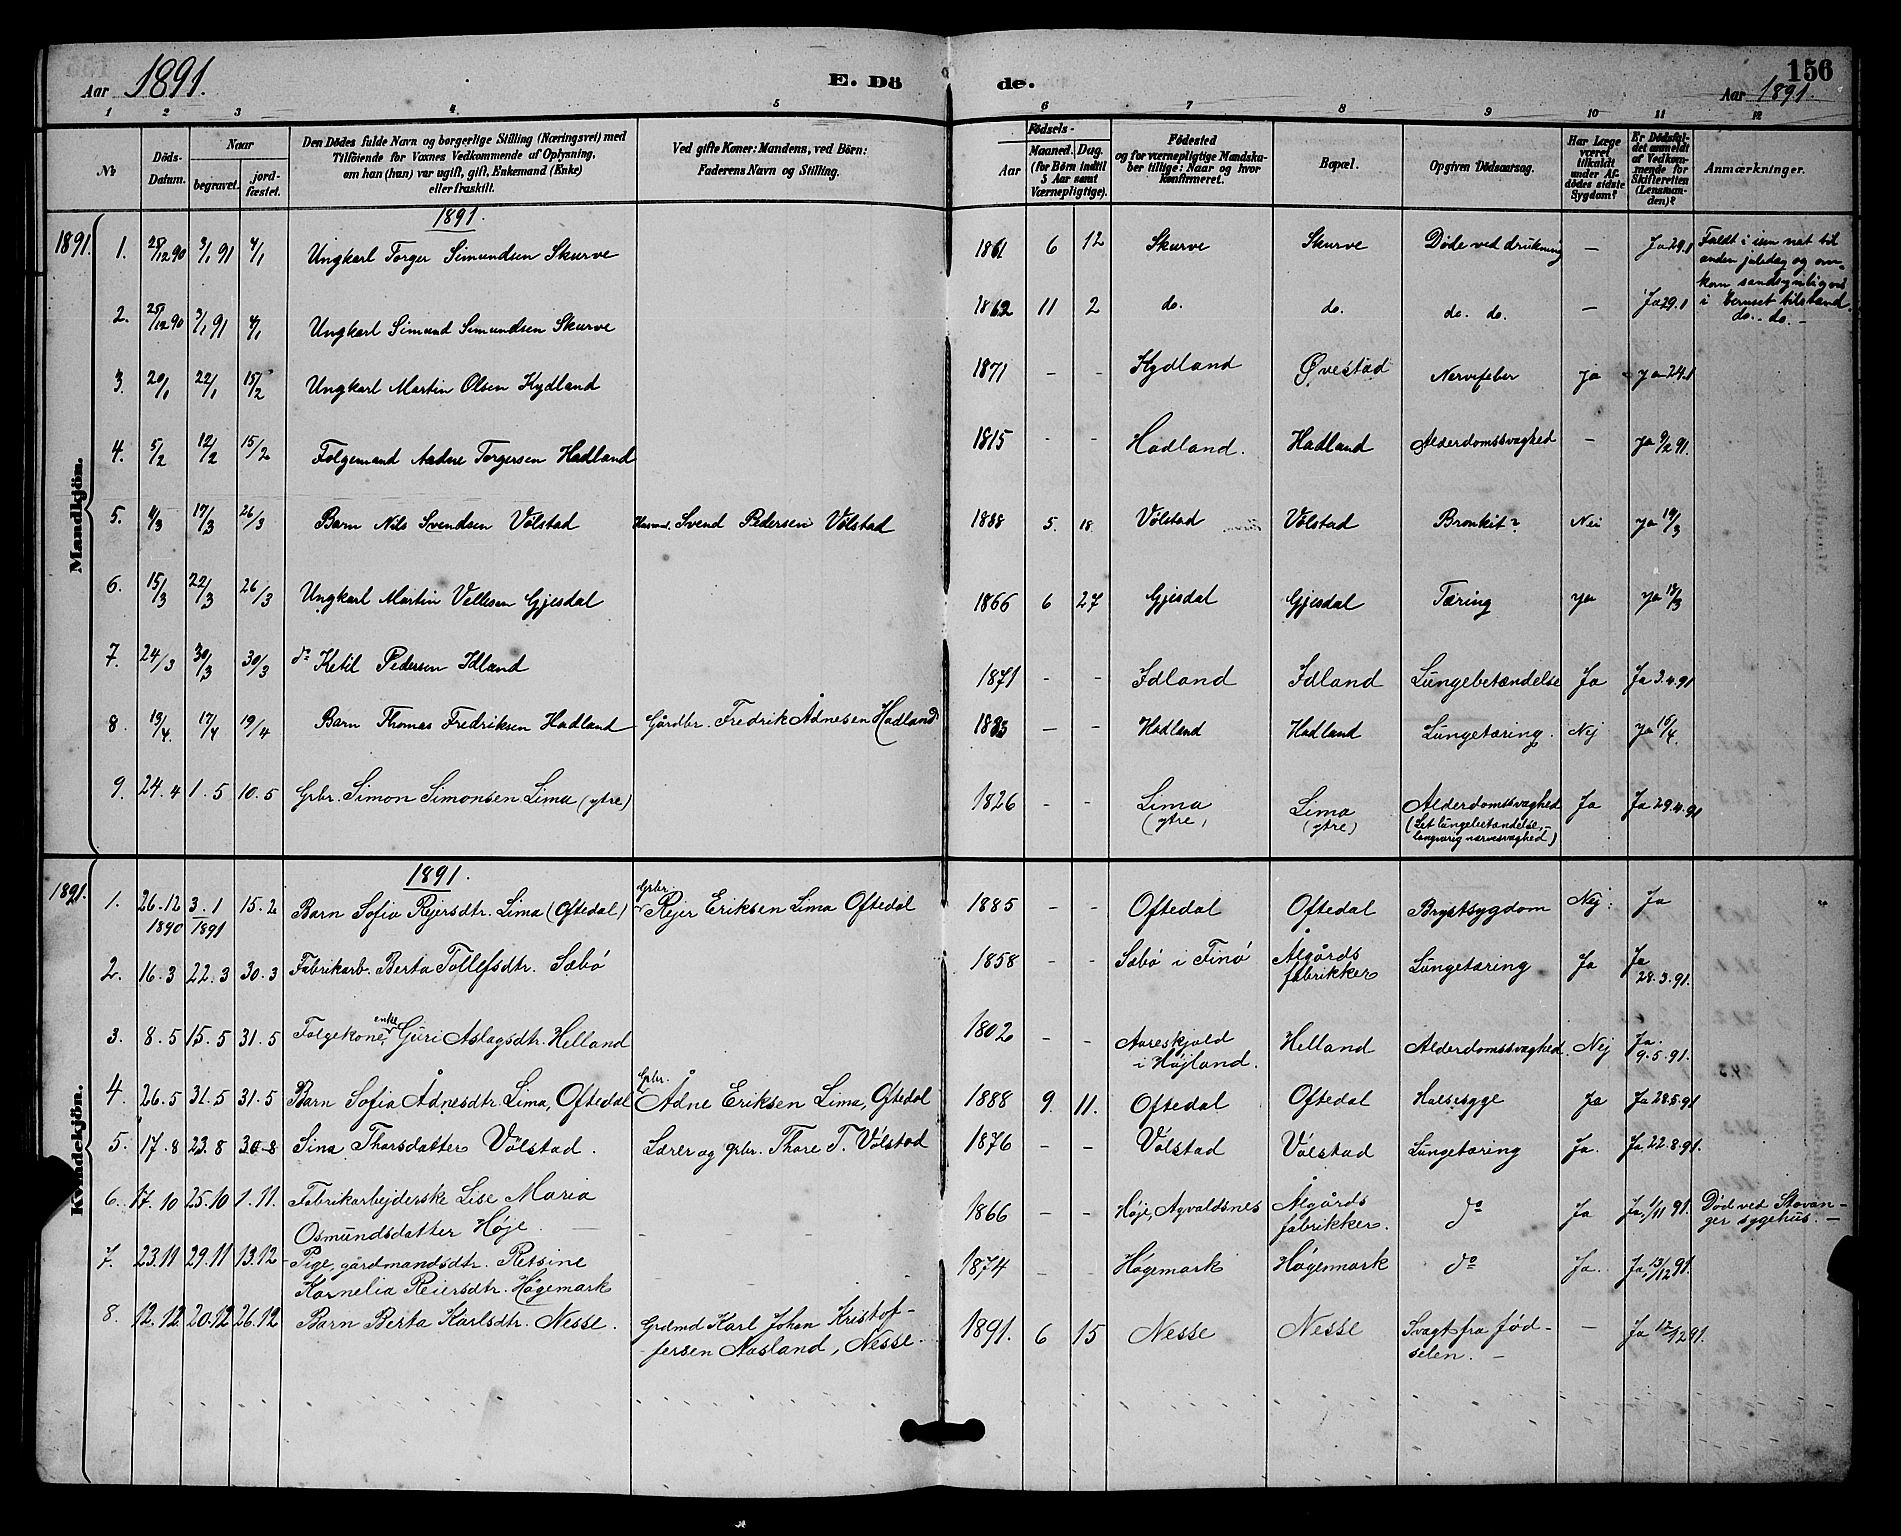 Aar 1891. E. Dö de. 156
Aar 1891.
1 2 3 4 5 6 7 8 9 10 11 12
№ Döds-Datum. Naar begravet. jordfæstet.
Den Dödes fulde Navn og borgerlige Stilling (Næringsvei) med
Tilföiende for Voxnes Vedkommende af Oplysning,
om han (hun) var ugift, gift, Enkemand (Enke)
eller fraskilt.
Ved gifte Koner: Mandens, ved Börn:
Faderens Navn og Stilling.
Födsels-
Aar Maaned. Dag.
(for Börn indtil
5 Aar samt
Værnepligtige).
Födested
og for værnepligtige Mandska-
ber tillige: Naar og hvor
konfirmeret.
Bopæl.
Opgiven Dödsaarsag.
Har Læge
været
tilkaldt
under Af-
dödes sidste
Sygdom?
Er Dödsfal-
det anmeldt
af Vedkom-
mende for
Skifteretten
(Lensman-
den)?
Anmærkninger.
Mandkjön.
1891. 1891.
1. 25/12 90 3/1 91 4/1 Ungkarl Torger Simundsen Skurve 1861 6 12 Skurve Skurve Døde ved drukning — Ja 29.1 Faldt i isen nat til
anden juledag og om-
kom sandsynligvis
i beruset tilstand.
2. 25/12 90 3/1 91 4/1 Ungkarl Simund Simundsen Skurve 1862 11 2 do. do. do. do. — Ja 29.1 do. do. -
3. 20/1 22/1 15/2 Ungkarl Martin Olsen Kydland 1871 - - Kydland Øvestad Nervefeber Ja Ja 24.1
4. 5/2 12/2 15/2 Folgemand Aadne Torgersen Hadland 1815 - - Hadland. Hadland Alderdomssvaghed - Ja 9/2 91.
5. 11/3 17/3 26/3 Barn Nils Svendsen Vølstad Svend Pedersen Vølstad 1888 5. 18. Vølstad Vølstad Bronkit? Nei Ja 19/3
6. 15/3 22/3 26/3 Ungkarl Martin Vellesen Gjesdal 1866 6 27 Gjesdal Gjesdal Tæring Ja Ja 18/3
7. 24/3 30/3 30/3 do Ketil Pedersen Idland 1871 - - Idland Idland Lungebetændelse Ja Ja 3.4.91
8 13/4. 17/4 19/4 Barn Thomas Fredriksen Hadland Gårdbr. Fredrik Ådnesen Hadland 1883 — - Hadland Hadland Lungetæring. Nej Ja 16/4.
9. 24.4 1.5 10.5 Grbr. Simon Simonsen Lima (ytre) 1826 - - Lima
(ytre) Lima
(ytre) Alderdomssvaghed
(Let lungebetændelse,
langvarig nervesvaghed) Ja Ja 29.4.91
Kvindekjön.
1891. 1891.
1. 26.12
1890 3.1
1891 15.2 Barn Sofia Rejersdtr. Lima (Oftedal) Grbr.
Rejer Eriksen Lima Oftedal 1885 - - Oftedal Oftedal Brystsygdom Nej. Ja
2. 16.3 22.3 30.3 Fabrikarb. Berta Tollefsdtr. Sæbø 1858 - - Sæbø i Finø Ålgårds
fabrikker Lungetæring Ja Ja
28.3.91.
3. 8.5 15.5 31.5 Folgekone, enke Guri Aslagsdtr. Helland 1802 - - Aareskjold
i Højland. Helland Alderdomssvaghed. Nej Ja.
9.5.91.
4. 26.5 31.5 31.5 Barn Sofia Ådnesdtr. Lima, Oftedal Grbr.
Ådne Eriksen Lima, Oftedal 1888 9. 11. Oftedal Oftedal Halsesyge Ja Ja 28.5.91
5. 17.8 23.8 30-8 Sina Thorsdatter Vølstad. Lærer og grbr. Thore T. Vølstad 1876 - - Vølstad Vølstad Lungetæring Ja. Ja, 22.8.91.
6. 17.10 25.10 1.11. Fabrikarbejderske Lise Maria
Osmundsdatter Høje. 1866 - - Høje, Agvaldsnes Ålgårds
fabrikker. do Ja Ja, 1/11 91. Død ved Stavan-
ger sygehus. —
7. 23.11 29.11 13.12 Pige, gårdmandsdtr. Retsine
Kornelia Reiersdtr. Høgemark 1874 - - Høgemark Høgemark do Ja. Ja, 13/12 91.
8. 12.12 20.12 26.12 Barn Berta Karlsdtr. Nesse. Grdmd Karl Johan Kristof-
fersen Aasland, Nesse. 1891. 6 15 Nesse Nesse Svagt fra fød-
selen. - — Ja 12/12 91.